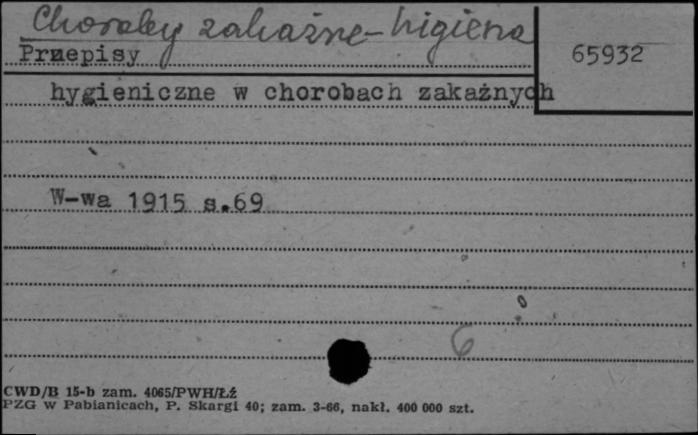 Choroby zakaźne - higiena
Przepisy
65932
hygieniczne w chorobach zakażnych
W-wa 1915 s.69
6
CWD/B 15-b zam. 4065/PWH/Łź
PZG w Pabianicach, P. Skargi 40; zam. 3-66, nakł. 400 000 szt.